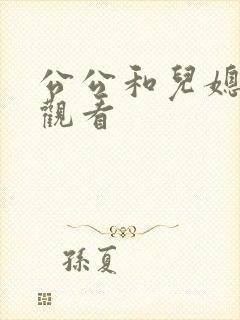 公公和兒媳
觀看
孫夏